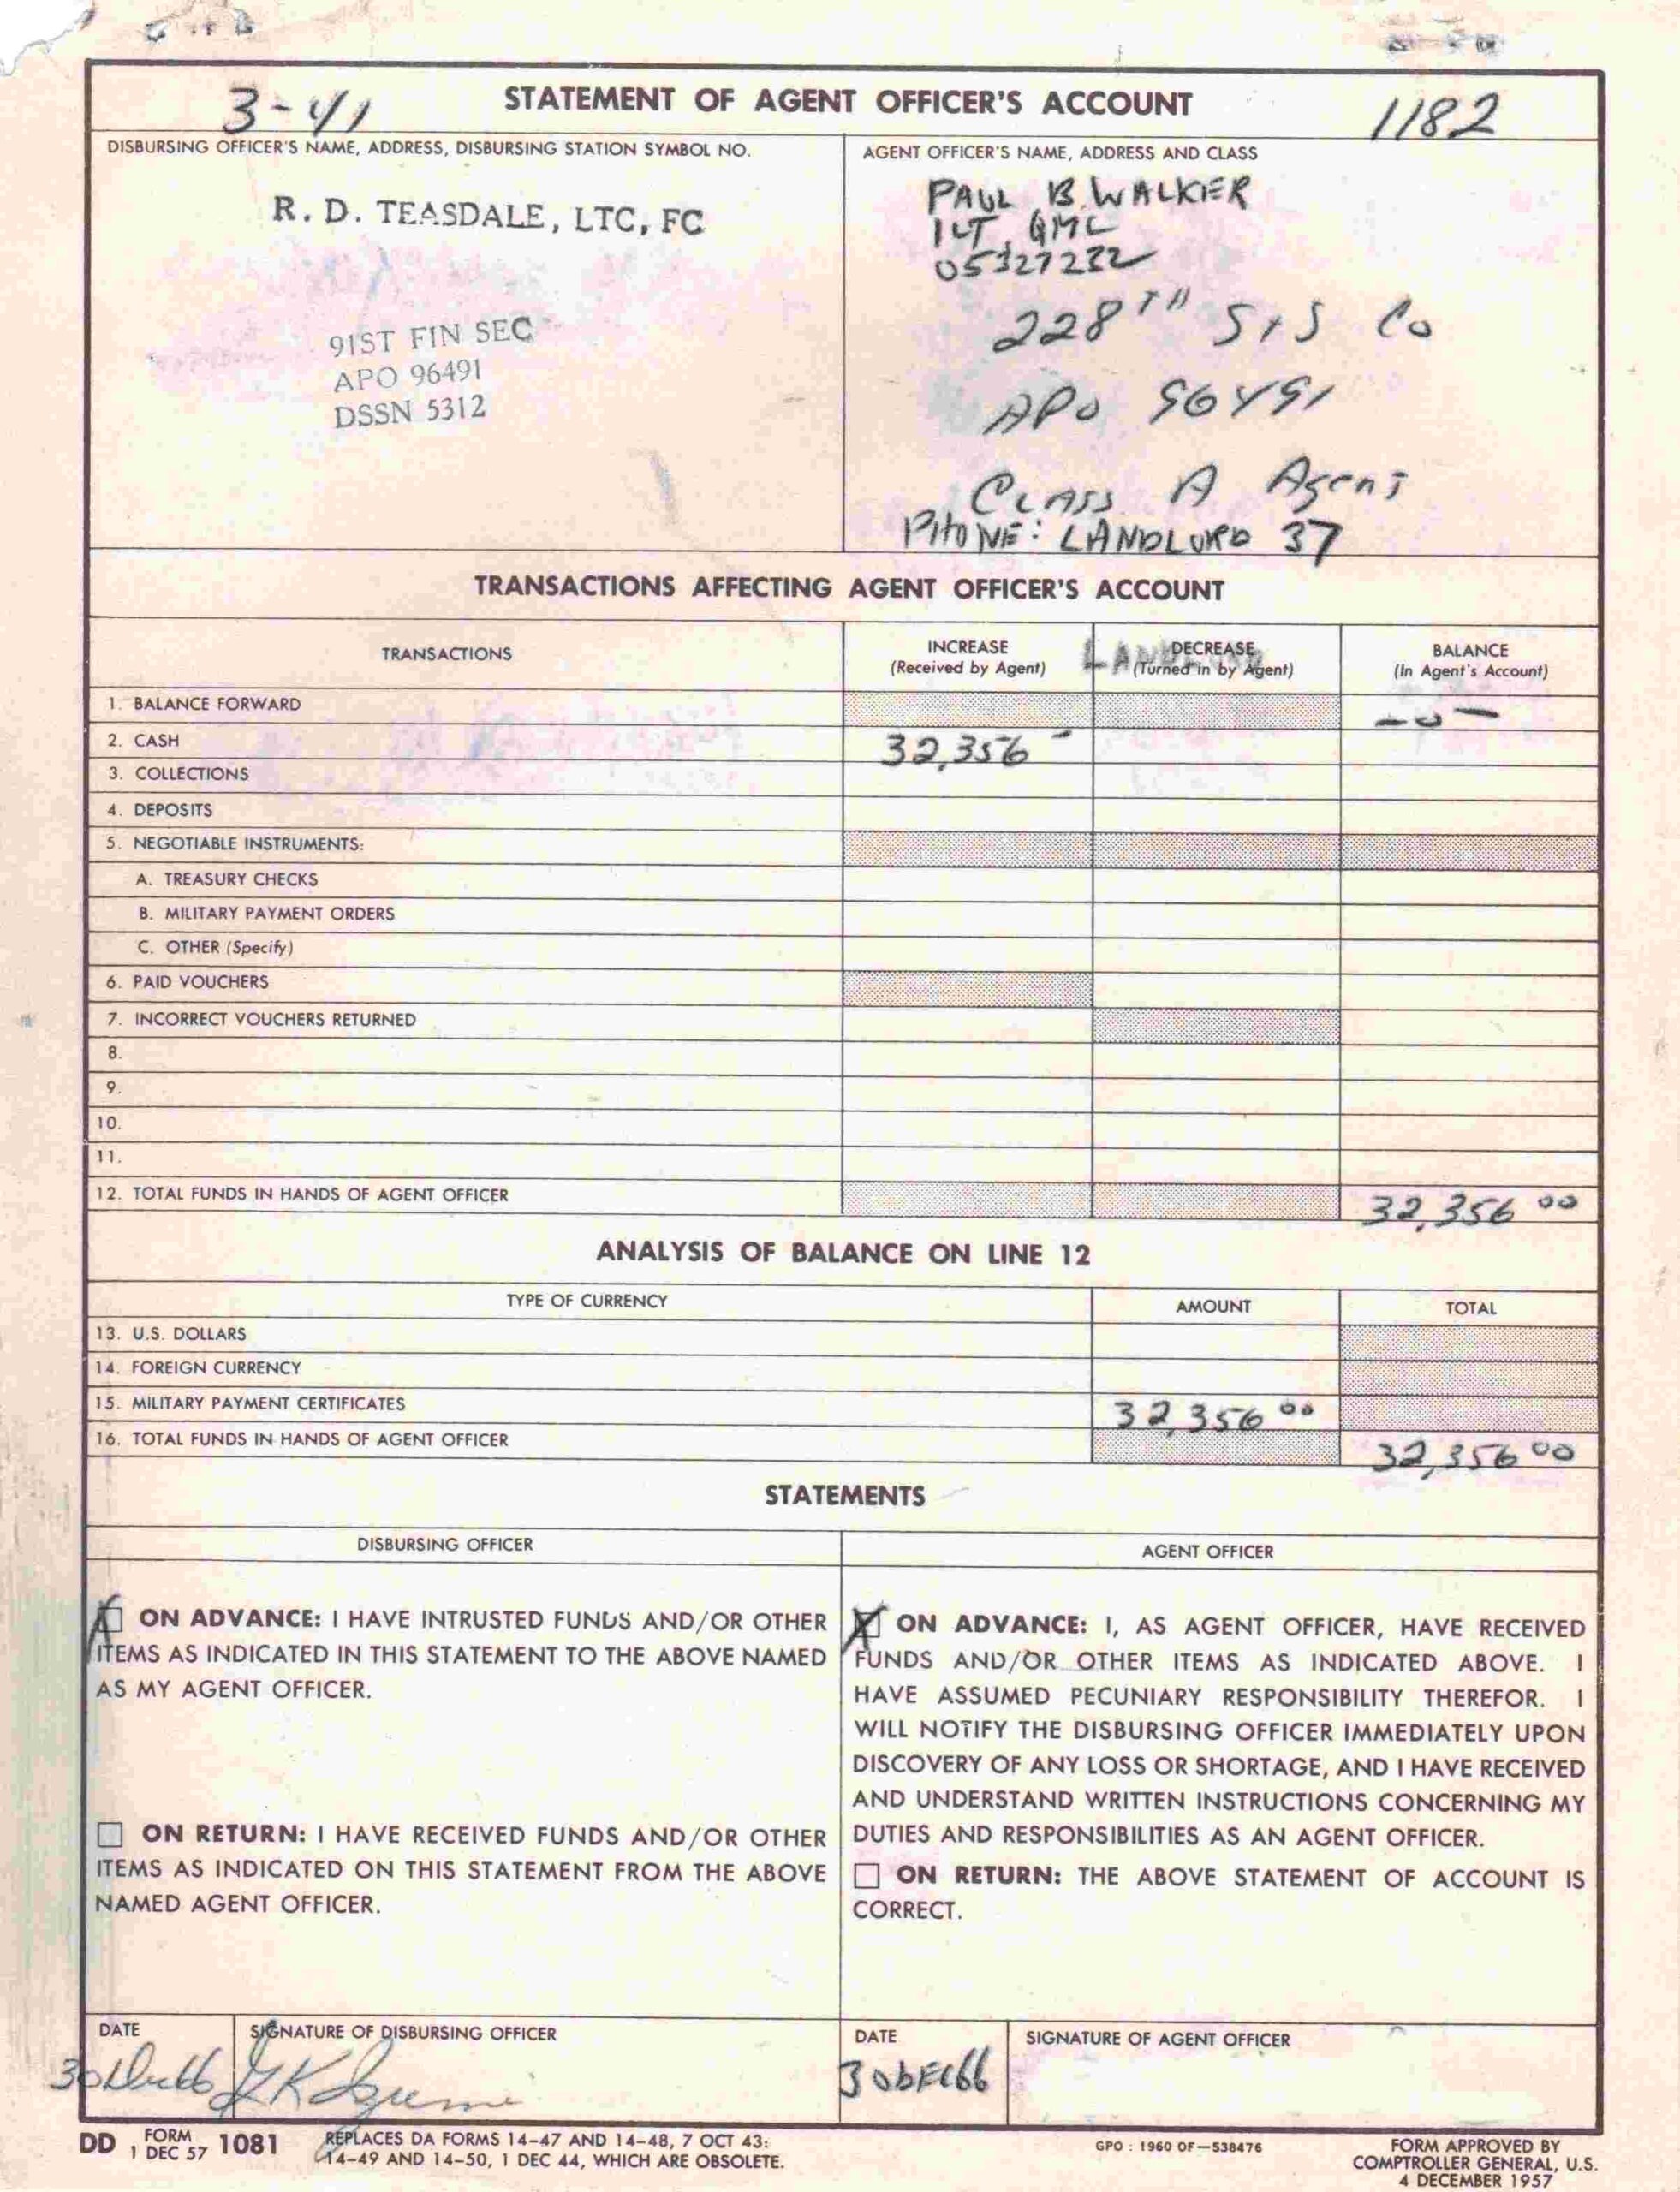 3-41
STATEMENT OF AGENT OFFICER'S ACCOUNT
1182
DISBURSING OFFICER'S NAME, ADDRESS, DISBURSING STATION SYMBOL NO.
R. D. TEASDALE, LTC, FC
91ST FIN SEC
APO 96491
DSSN 5312
AGENT OFFICER'S NAME, ADDRESS AND CLASS
PAUL B. WALKER
1LT, QMC
05327232
228TH S+S Co
APO 96491
CLASS A Agent
PHONE: LANDLORD 37
TRANSACTIONS AFFECTING AGENT OFFICER'S ACCOUNT
TRANSACTIONS
INCREASE
(Received by Agent)
DECREASE
(Turned in by Agent)
BALANCE
(In Agent's Account)
1. BALANCE FORWARD -0-
2. CASH 32,356 -
3. COLLECTIONS
4. DEPOSITS
5. NEGOTIABLE INSTRUMENTS:
A. TREASURY CHECKS
B. MILITARY PAYMENT ORDERS
C. OTHER (Specify)
6. PAID VOUCHERS
7. INCORRECT VOUCHERS RETURNED
8.
9.
10.
11.
12. TOTAL FUNDS IN HANDS OF AGENT OFFICER 32,356 00
ANALYSIS OF BALANCE ON LINE 12
TYPE OF CURRENCY AMOUNT TOTAL
13. U.S. DOLLARS
14. FOREIGN CURRENCY
15. MILITARY PAYMENT CERTIFICATES 32,356 00
16. TOTAL FUNDS IN HANDS OF AGENT OFFICER 32,356 00
STATEMENTS
DISBURSING OFFICER
ON ADVANCE: I HAVE INTRUSTED FUNDS AND/OR OTHER
ITEMS AS INDICATED IN THIS STATEMENT TO THE ABOVE NAMED
AS MY AGENT OFFICER.
ON RETURN: I HAVE RECEIVED FUNDS AND/OR OTHER
ITEMS AS INDICATED ON THIS STATEMENT FROM THE ABOVE
NAMED AGENT OFFICER.
AGENT OFFICER
ON ADVANCE: I, AS AGENT OFFICER, HAVE RECEIVED
FUNDS AND/OR OTHER ITEMS AS INDICATED ABOVE. I
HAVE ASSUMED PECUNIARY RESPONSIBILITY THEREFOR. I
WILL NOTIFY THE DISBURSING OFFICER IMMEDIATELY UPON
DISCOVERY OF ANY LOSS OR SHORTAGE, AND I HAVE RECEIVED
AND UNDERSTAND WRITTEN INSTRUCTIONS CONCERNING MY
DUTIES AND RESPONSIBILITIES AS AN AGENT OFFICER.
ON RETURN: THE ABOVE STATEMENT OF ACCOUNT IS
CORRECT.
DATE
30 Dec 66
SIGNATURE OF DISBURSING OFFICER
DATE
30 DEC 66
SIGNATURE OF AGENT OFFICER
DD FORM 1 DEC 57 1081
REPLACES DA FORMS 14-47 AND 14-48, 7 OCT 43:
14-49 AND 14-50, 1 DEC 44, WHICH ARE OBSOLETE.
GPO : 1960 OF—538476
FORM APPROVED BY
COMPTROLLER GENERAL, U.S.
4 DECEMBER 1957